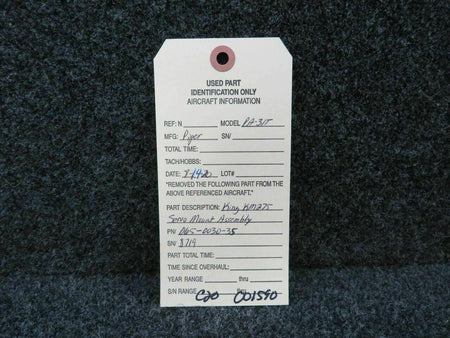 USED PART
IDENTIFICATION ONLY
AIRCRAFT INFORMATION
REF: N MODEL PA-31T
MFG: Piper SN/
TOTAL TIME:
TACH/HOBBS:
DATE: 7-14-20 LOT#
"REMOVED THE FOLLOWING PART FROM THE
ABOVE REFERENCED AIRCRAFT."
PART DESCRIPTION: King KM275
Servo Mount Assembly
PN/ 065-0030-35
SN/ 8719
PART TOTAL TIME:
TIME SINCE OVERHAUL:
YEAR RANGE thru
S/N RANGE C20 thru 001590